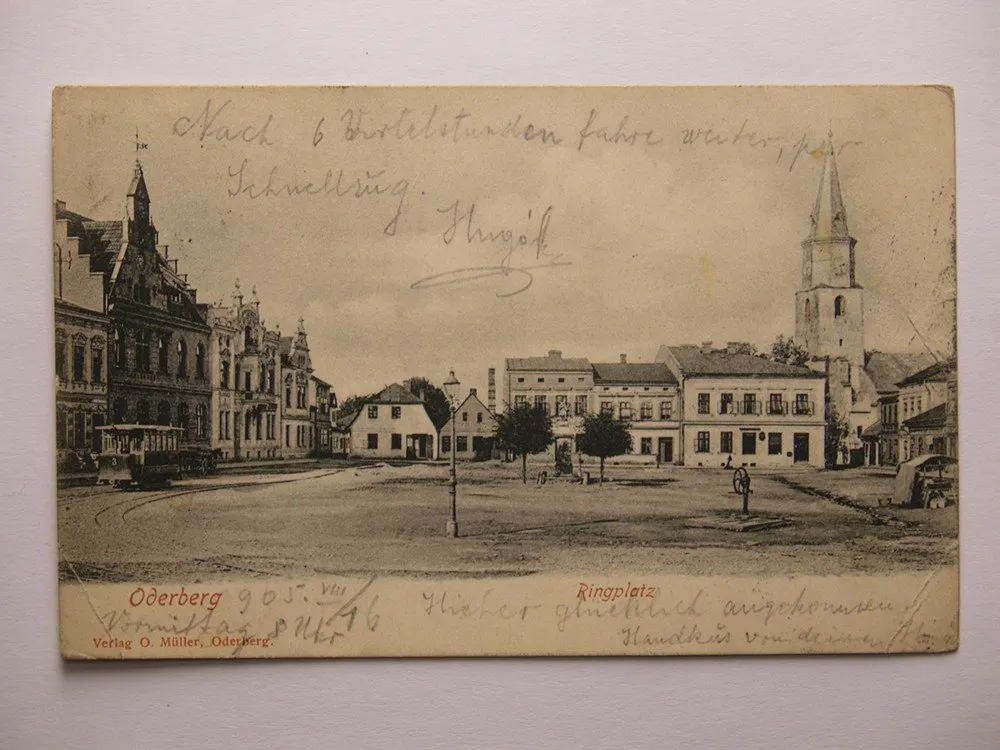 Nach 6 Virtelstunden fahre weiter, per
Schnellzug.
Oderberg 905. VIII/16
Ringplatz
Vormittag 8 Uhr
Hieher glücklich angekommen.
Handkuß von deinem
Verlag O. Müller, Oderberg.
3